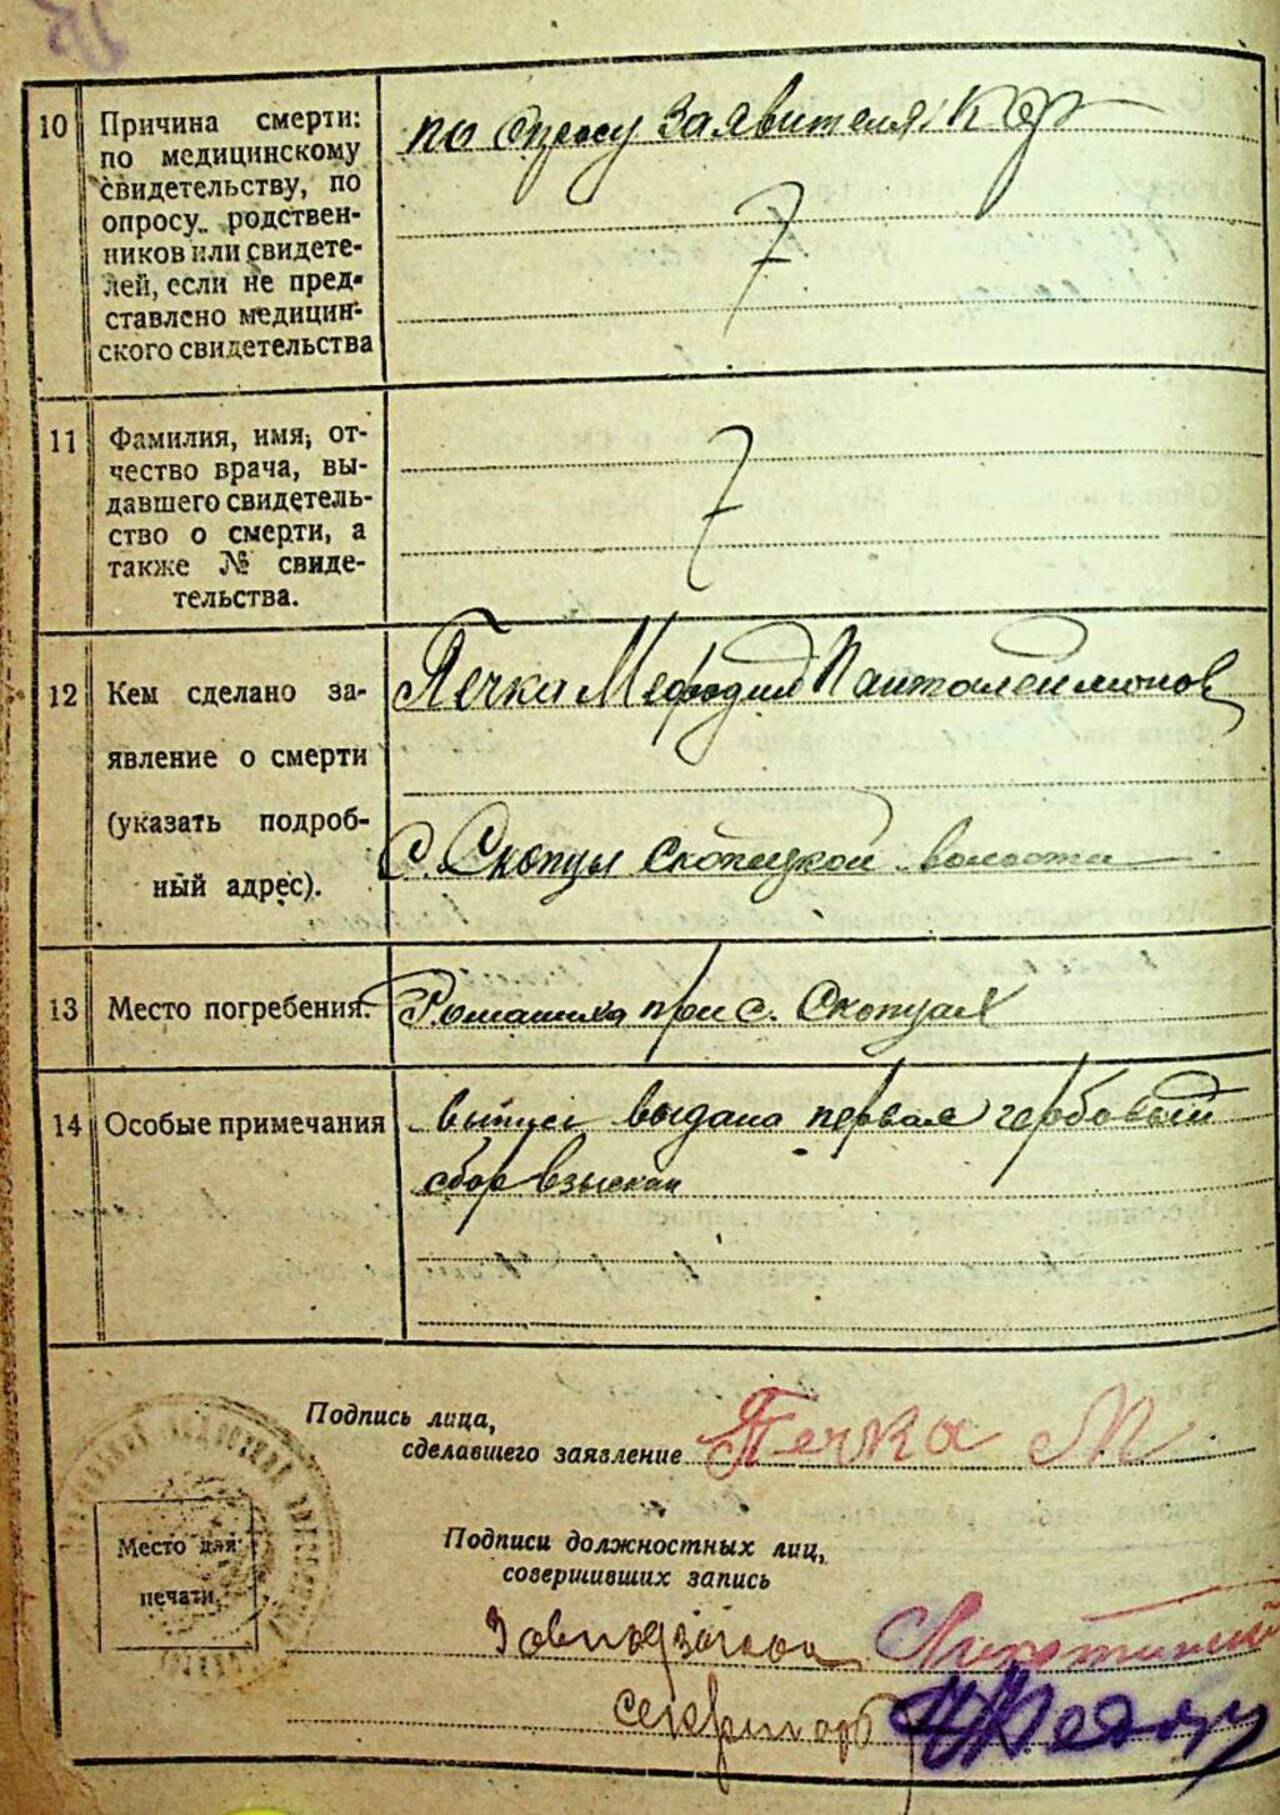 10 Причина смерти:
по медицинскому
свидетельству, по
опросу родствен-
ников или свидете-
лей, если не пред-
ставлено медицин-
ского свидетельства
по опросу заявителя:
11 Фамилия, имя, от-
чество врача, вы-
давшего свидетель-
ство о смерти, а
также № свиде-
тельства.
12 Кем сделано за-
явление о смерти
(указать подроб-
ный адрес).
Печка Мефодий Пантолеймонов
С. Скопцы Скопецкой волости
13 Место погребения.
при с. Скопцах
14 Особые примечания
выпись выдана первая гербовый
сбор взыскан
Подпись лица,
сделавшего заявление Печка М
Место для
печати.
Подписи должностных лиц,
совершивших запись
Завподзагсом
секретарь